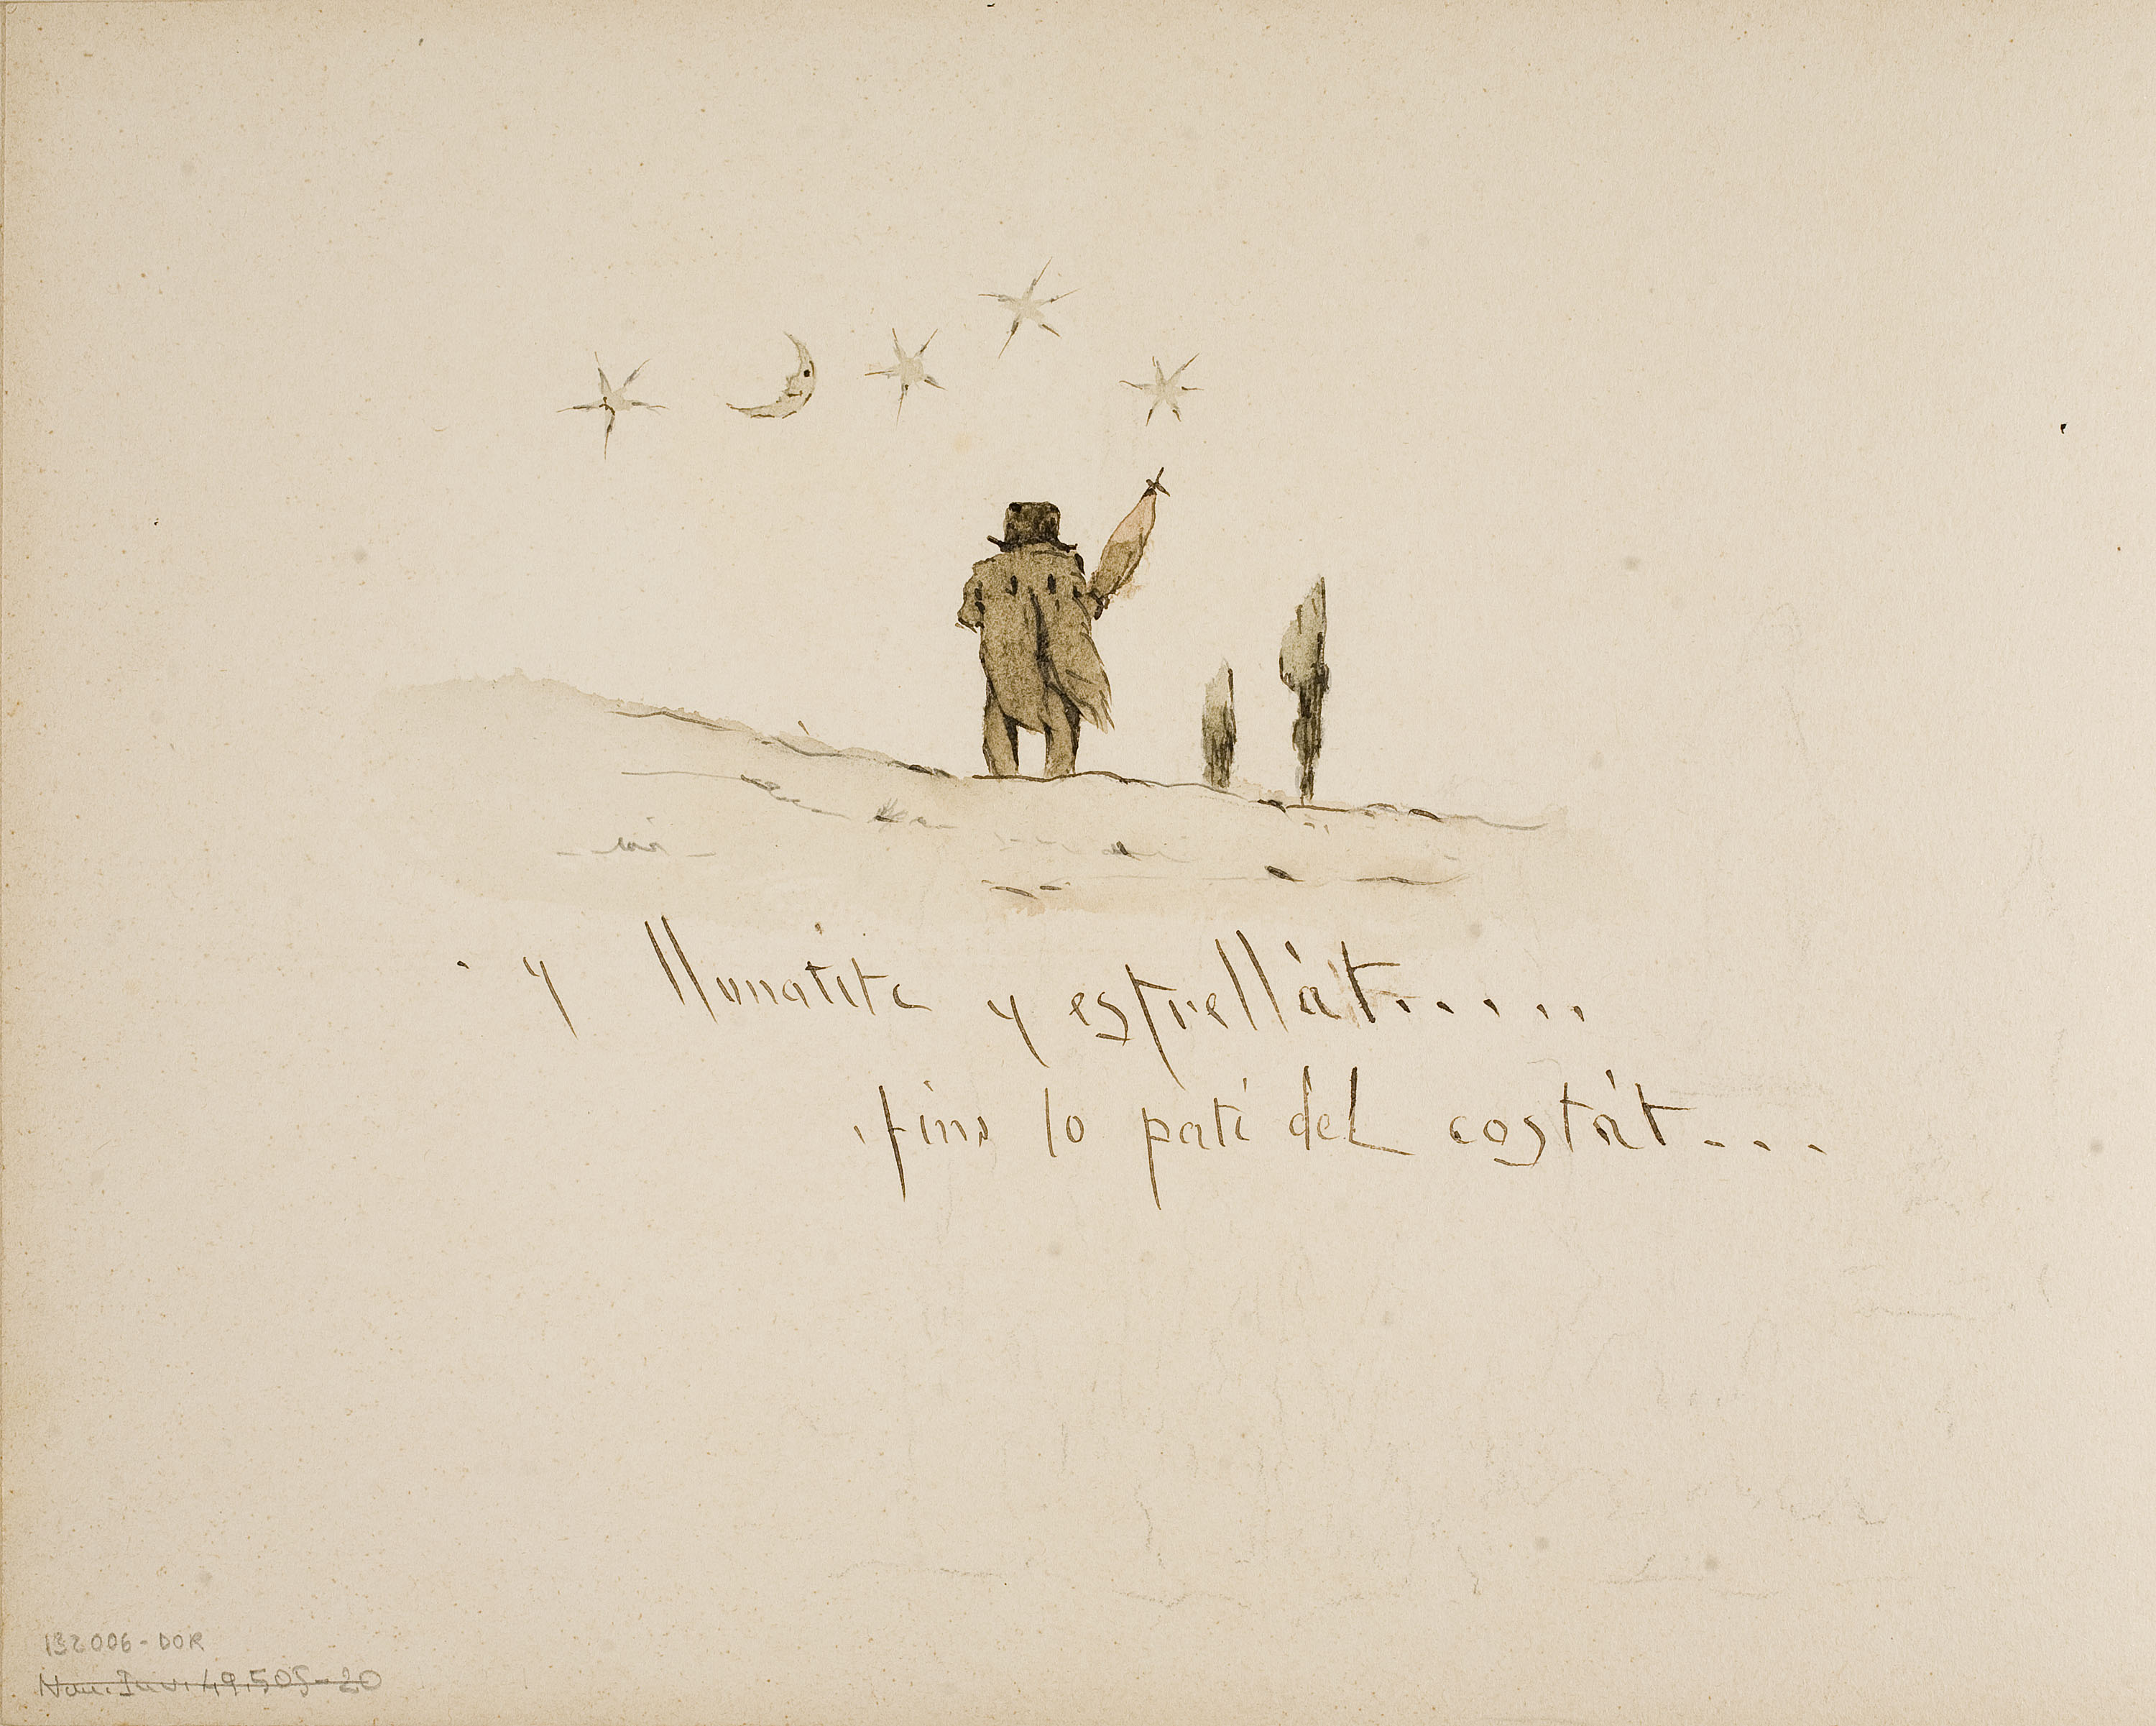 y llunàtitc y estrellàt......
fins lo pati del costàt...
132006-DOR
Nou. Inv. 49.505-20